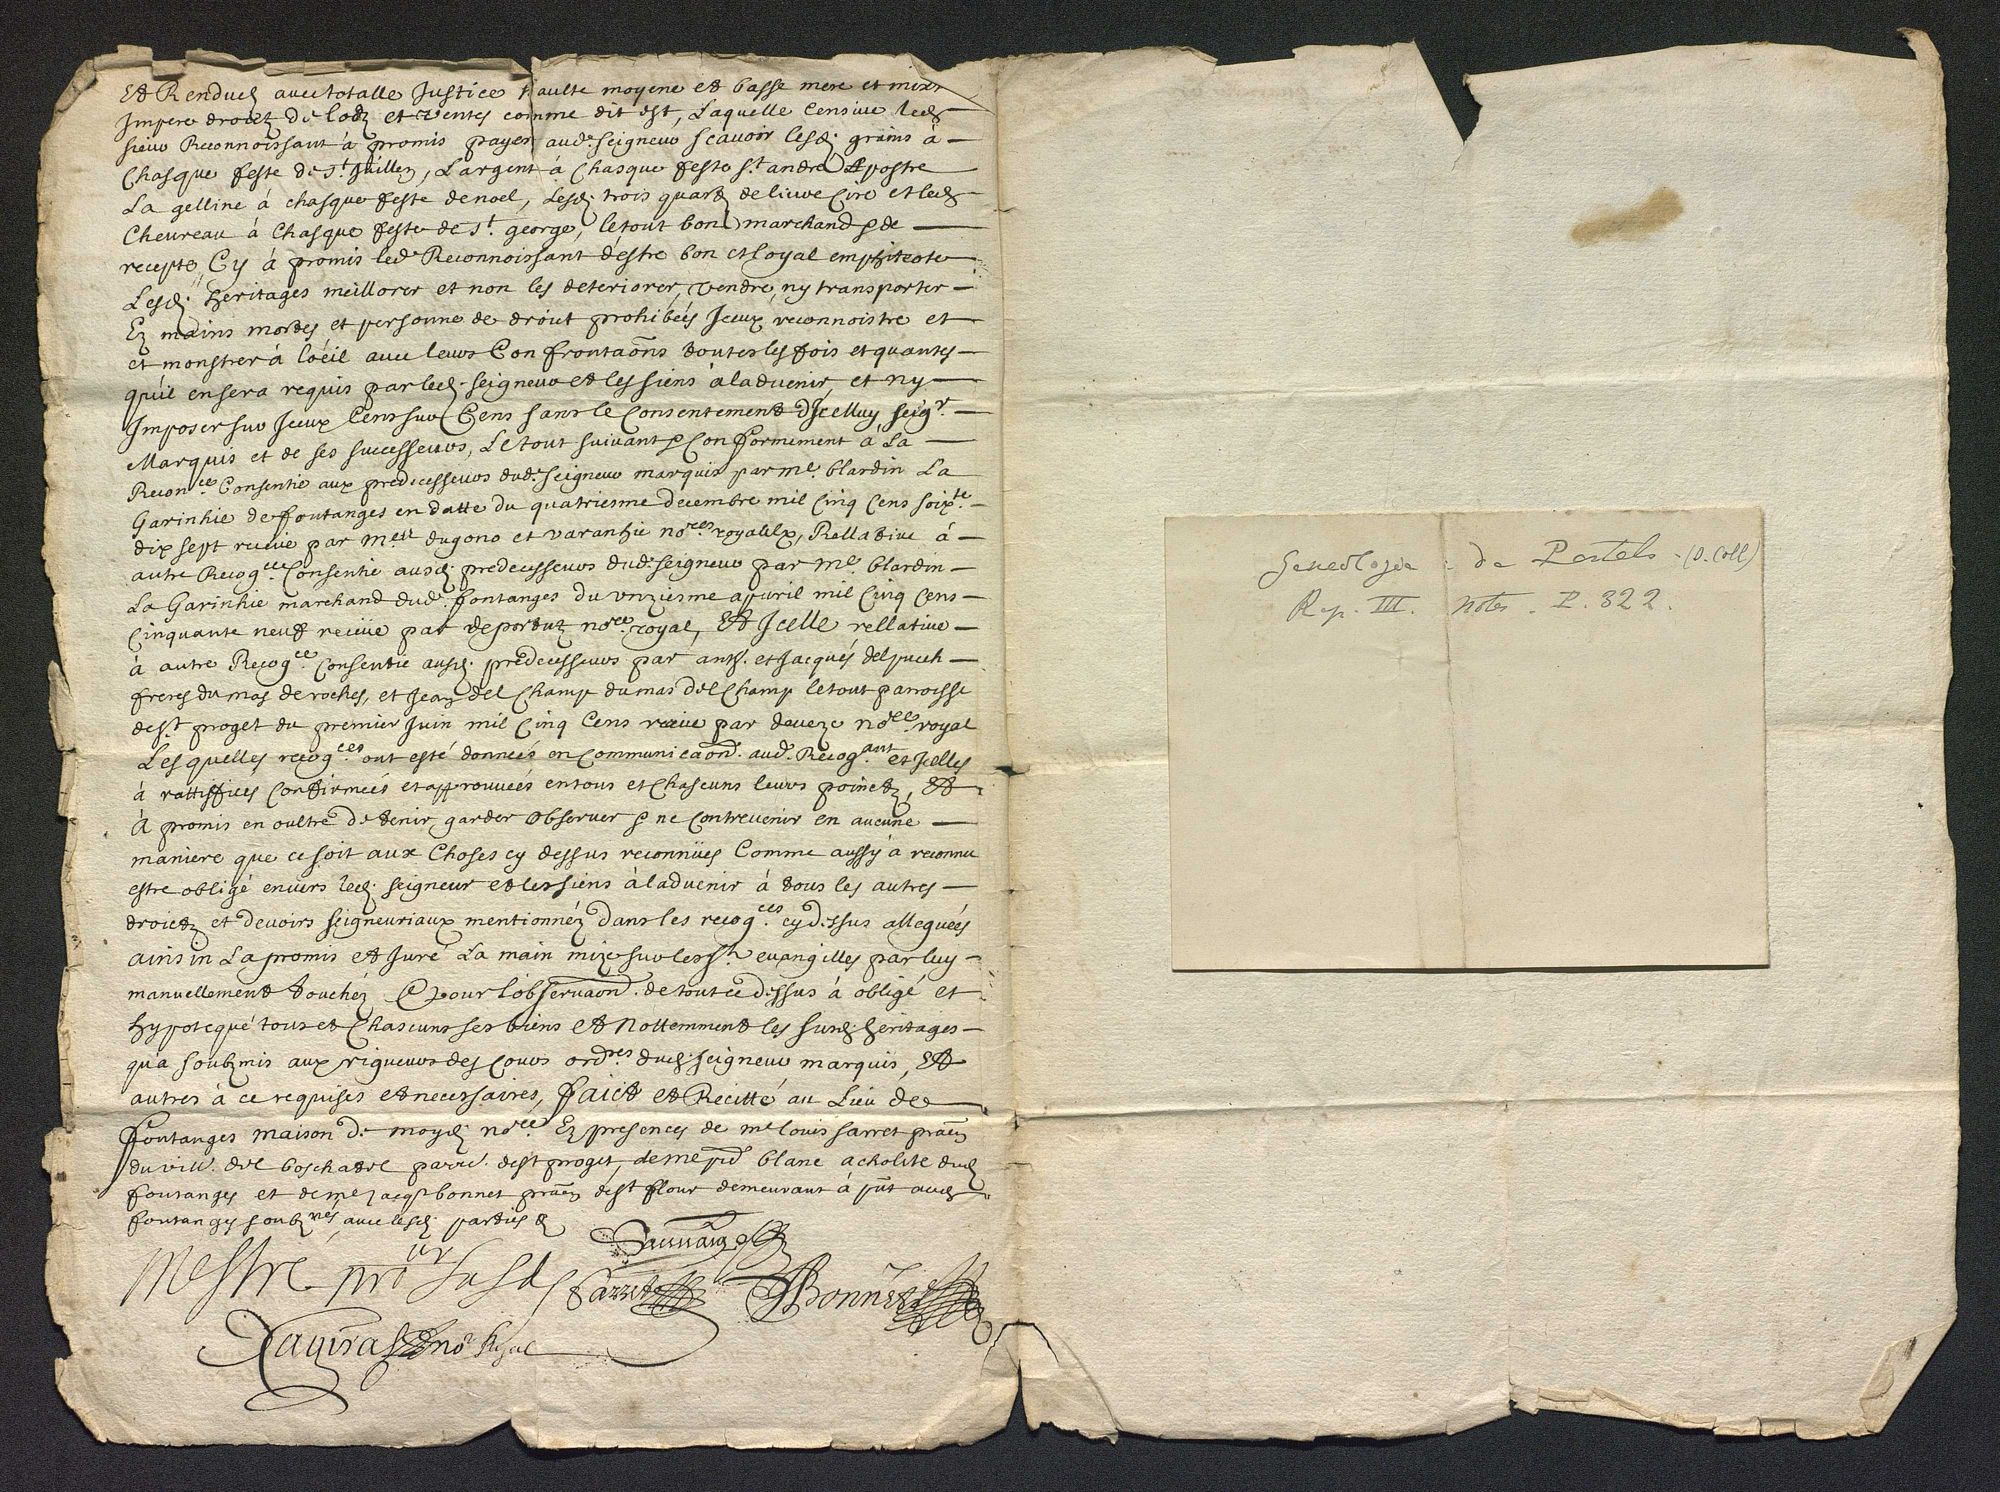 Et Renduel avec totalle Justice haulte moyene et basse mere et mixte
Impere droietz de lodz et ventes comme dit est, Laquelle Censive led.
sieur Reconnoissant à promis payer aud. seigneur scavoir lesd. grains à
Chasque feste de St. Juillen, L'argent à Chasque feste St. andre Apostre
La gelline à chasque feste de noel, Lesd. trois quartz de livre Cire et led.
Chevreau à Chasque feste de St. george, le tout bon marchand & de
recepte, Cy à promis led. Reconnoissant d'estre bon et loyal emphiteote
Lesd. heritages meillorer et non les deteriorer, vendre, ny transporter
Ez mains mortes et personne de droict prohibéés Jceux reconnoistre et
et monstrer à l'oéil avec leurs Confrontaōns toutes les fois et quantes
qu'il en sera requis par led. seigneur et les siens à l'advenir, et ny
Imposer sur Jceux Cens sur Cens sans le Consentement d'Jcelluy seigr.
Marquis et de ses successeurs, Le tout suivant & Conformement à La
Reconce. Consentie aux predecesseurs dud. seigneur marquis par me. blardin La
Garinhie de foutanges en datte du quatriesme decembre mil Cinq Cens soixte.
dix sept receue par mes. dugono et varanhie nores. royaulx, Rellative à
autre Recogce. Consentie ausd. predecesseurs dud. seigneur par me. blardin
La Garinhie marchand dud. fontanges du vnziesme apvril mil Cinq Cens
Cinquante neuf receüe par deportutz nore. royal, Et Jcelle rellative
à autre Recogce. Consentie ausd. predecesseurs par anth. et Jacqués delpuech
freres du mas de roches, et Jean del Champ du mas del Champ le tout parroisse
de st. proget du premier Juin mil Cinq Cens receue par deveze nore. royal
Lesquelles recogces. ont esté donneés en Communicaōn. aud. Recogant. et Jcelles
à rattiffiees Confirmeés et approuveés en tous et Chascuns leurs poinctz, Et
A promis en oultre de tenir garder observer & ne Contrevenir en aucune
maniere que ce soit aux Choses cy dessus reconnües Comme aussy à reconnu
estre obligé envers led. seigneur et les siens à l'advenir à tous les autres
droictz et devoirs seigneuriaux mentionnéz dans les recogces. cy dessus alleguéés
ainsin La promis et Juré La main mize sur les sts. evangilles par luy
manuellement touchéz Et pour l'observaōn. de tout ce dessus à obligé et
hypotequé tous et Chascuns ses biens et nottemment les susd. heritages
qu'a soubzmis aux rigueurs des Cours ordres. dud. seigneur marquis, Et
autres à ce requises et necessaires, faict et Recitté au Lieu de
fontanges maison de moyd. nore. Ez presences de me louis sarret praēn
du vill. del boschatel parre. de st proget, de me pd blanc acholite dud.
foutanges et de me Jacqs bonnet praēn de st flour demeurant à pnt aud.
fontanges soubznés avec lesd. parties
Sarret Bonnet
Mestre
Genealogie de Portels. (D. Coll)
Rep. III. Notes. P. 322.